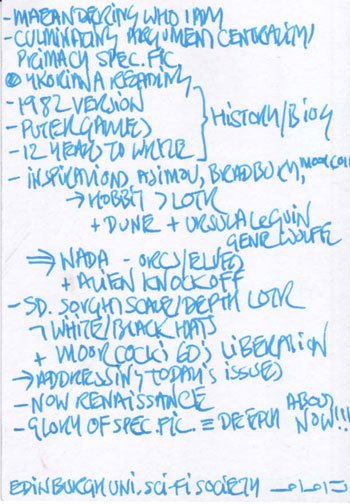 - MAEANDERING WHO I AM
- CULMINATING ARGUMENT CENTRALISM/
PRIMACY SPEC. FIC.
YKORIANA READING
- 1982 VERSION
- PUTER GAMES
- 12 YEARS TO WRITE
HISTORY/BIOG
- INSPIRATIONS ASIMOV, BRADBURY, MOORCOCK
→ HOBBIT > LOTR
+ DUNE + URSULA LEGUIN
GENE WOLFE
⇒ NADA - ORCS/ELVES
+ ALIEN KNOCKOFF
- SD. SOUGHT SCALE/DEPTH LOTR
¬ WHITE/BLACK HATS
+ MOORCOCK'S 60'S LIBERATION
→ ADDRESSING TODAY'S ISSUES
- NOW RENAISSANCE
- GLORY OF SPEC. FIC. ≡ DEEPLY ABOUT NOW!!!
EDINBURGH UNI. SCI-FI SOCIETY